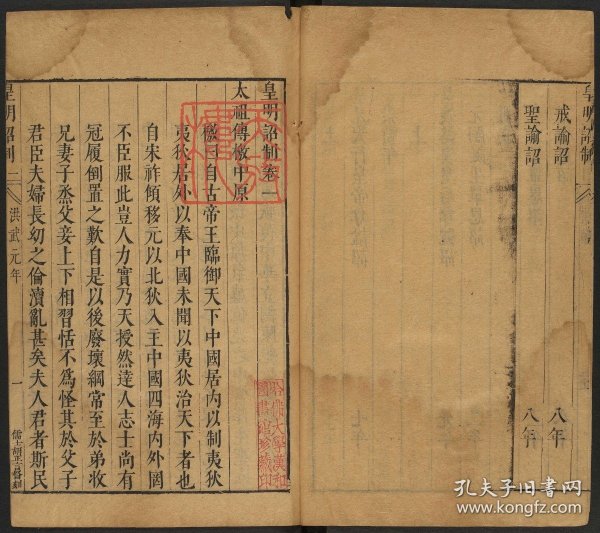 皇明詔制
戒諭詔 八年
聖諭詔 八年
皇明詔制卷一
太祖傳檄中原
檄曰自古帝王臨御天下中國居內以制夷狄
夷狄居外以奉中國未聞以夷狄治天下者也
自宋祚傾移元以北狄入主中國四海內外罔
不臣服此豈人力實乃天授然達人志士尚有
冠履倒置之歎自是以後廢壞綱常至於弟收
兄妻子烝父妾上下相習恬不為怪其於父子
君臣夫婦長幼之倫瀆亂甚矣夫人君者斯民
皇明詔制 一 洪武元年 一
哈佛大學漢和
圖書館珍藏印
孔夫子旧书网